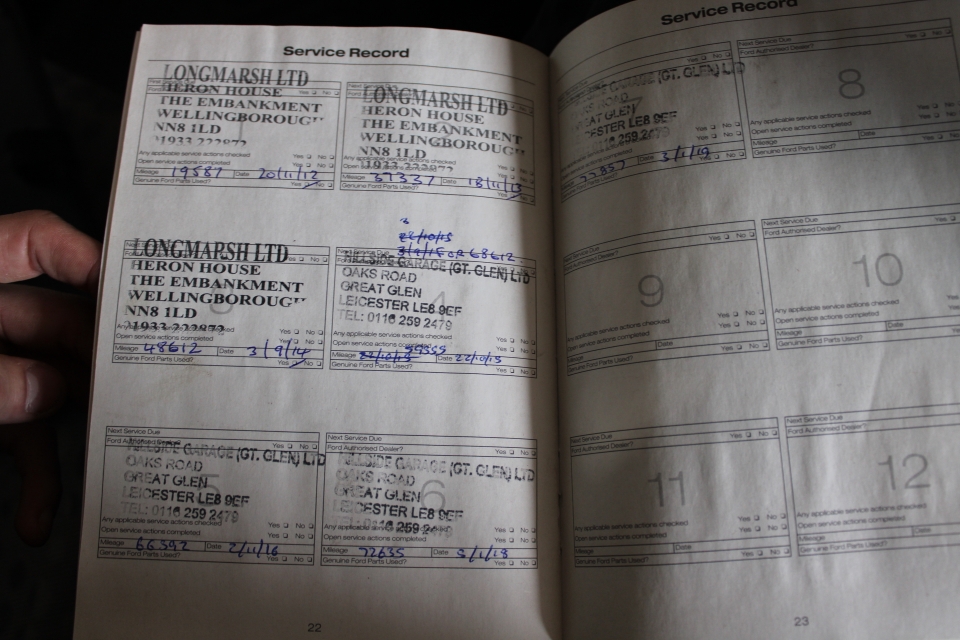 Service Record
LONGMARSH LTD
HERON HOUSE
THE EMBANKMENT
WELLINGBOROUGH
NN8 1LD
01933 222872
Any applicable service actions checked Yes No
Open service actions completed Yes No
Mileage 19587 Date 20/11/12
Genuine Ford Parts Used? Yes No
LONGMARSH LTD
HERON HOUSE
THE EMBANKMENT
WELLINGBOROUGH
NN8 1LD
01933 222872
Mileage 37337 Date 18/11/13
Genuine Ford Parts Used? Yes No
LONGMARSH LTD
HERON HOUSE
THE EMBANKMENT
WELLINGBOROUGH
NN8 1LD
01933 222872
Open service actions completed Yes No
Mileage 48612 Date 3/9/14
Genuine Ford Parts Used? Yes No
22/10/15
3/9/15 OR 68612
HILLSIDE GARAGE (GT. GLEN) LTD
OAKS ROAD
GREAT GLEN
LEICESTER LE8 9EF
TEL: 0116 259 2479
4
Any applicable service actions checked Yes No
Open service actions completed Yes No
Mileage 22/10/15 59355 Date 22/10/15
Genuine Ford Parts Used? Yes No
Next Service Due
Ford Authorised Dealer? Yes No
HILLSIDE GARAGE (GT. GLEN) LTD
OAKS ROAD
GREAT GLEN
LEICESTER LE8 9EF
TEL: 0116 259 2479
5
Any applicable service actions checked Yes No
Open service actions completed Yes No
Mileage 66392 Date 2/11/16
Genuine Ford Parts Used? Yes No
Next Service Due
HILLSIDE GARAGE (GT. GLEN) LTD
OAKS ROAD
GREAT GLEN
LEICESTER LE8 9EF
TEL: 0116 259 2479
6
Open service actions completed Yes No
Mileage 72635 Date 5/1/18
Genuine Ford Parts Used? Yes No
22
Service Record
GARAGE (GT. GLEN) LTD
GREAT GLEN
LEICESTER LE8 9EF
0116 259 2479
7
3/1/19
Next Service Due
Ford Authorised Dealer? Yes No
8
Any applicable service actions checked Yes No
Open service actions completed
Mileage Date
Next Service Due
Ford Authorised Dealer? Yes No
9
Any applicable service actions checked Yes No
Open service actions completed Yes No
Mileage Date
Genuine Ford Parts Used? Yes No
Next Service Due
Ford Authorised Dealer? Yes
10
Any applicable service actions checked
Open service actions completed
Mileage Date
Genuine Ford Parts Used?
Next Service Due
Ford Authorised Dealer? Yes No
11
Any applicable service actions checked Yes No
Open service actions completed Yes No
Mileage Date
Genuine Ford Parts Used? Yes No
Next Service Due
Ford Authorised Dealer?
12
Any applicable service actions checked
Open service actions completed
Mileage Date
Genuine Ford Parts Used?
23